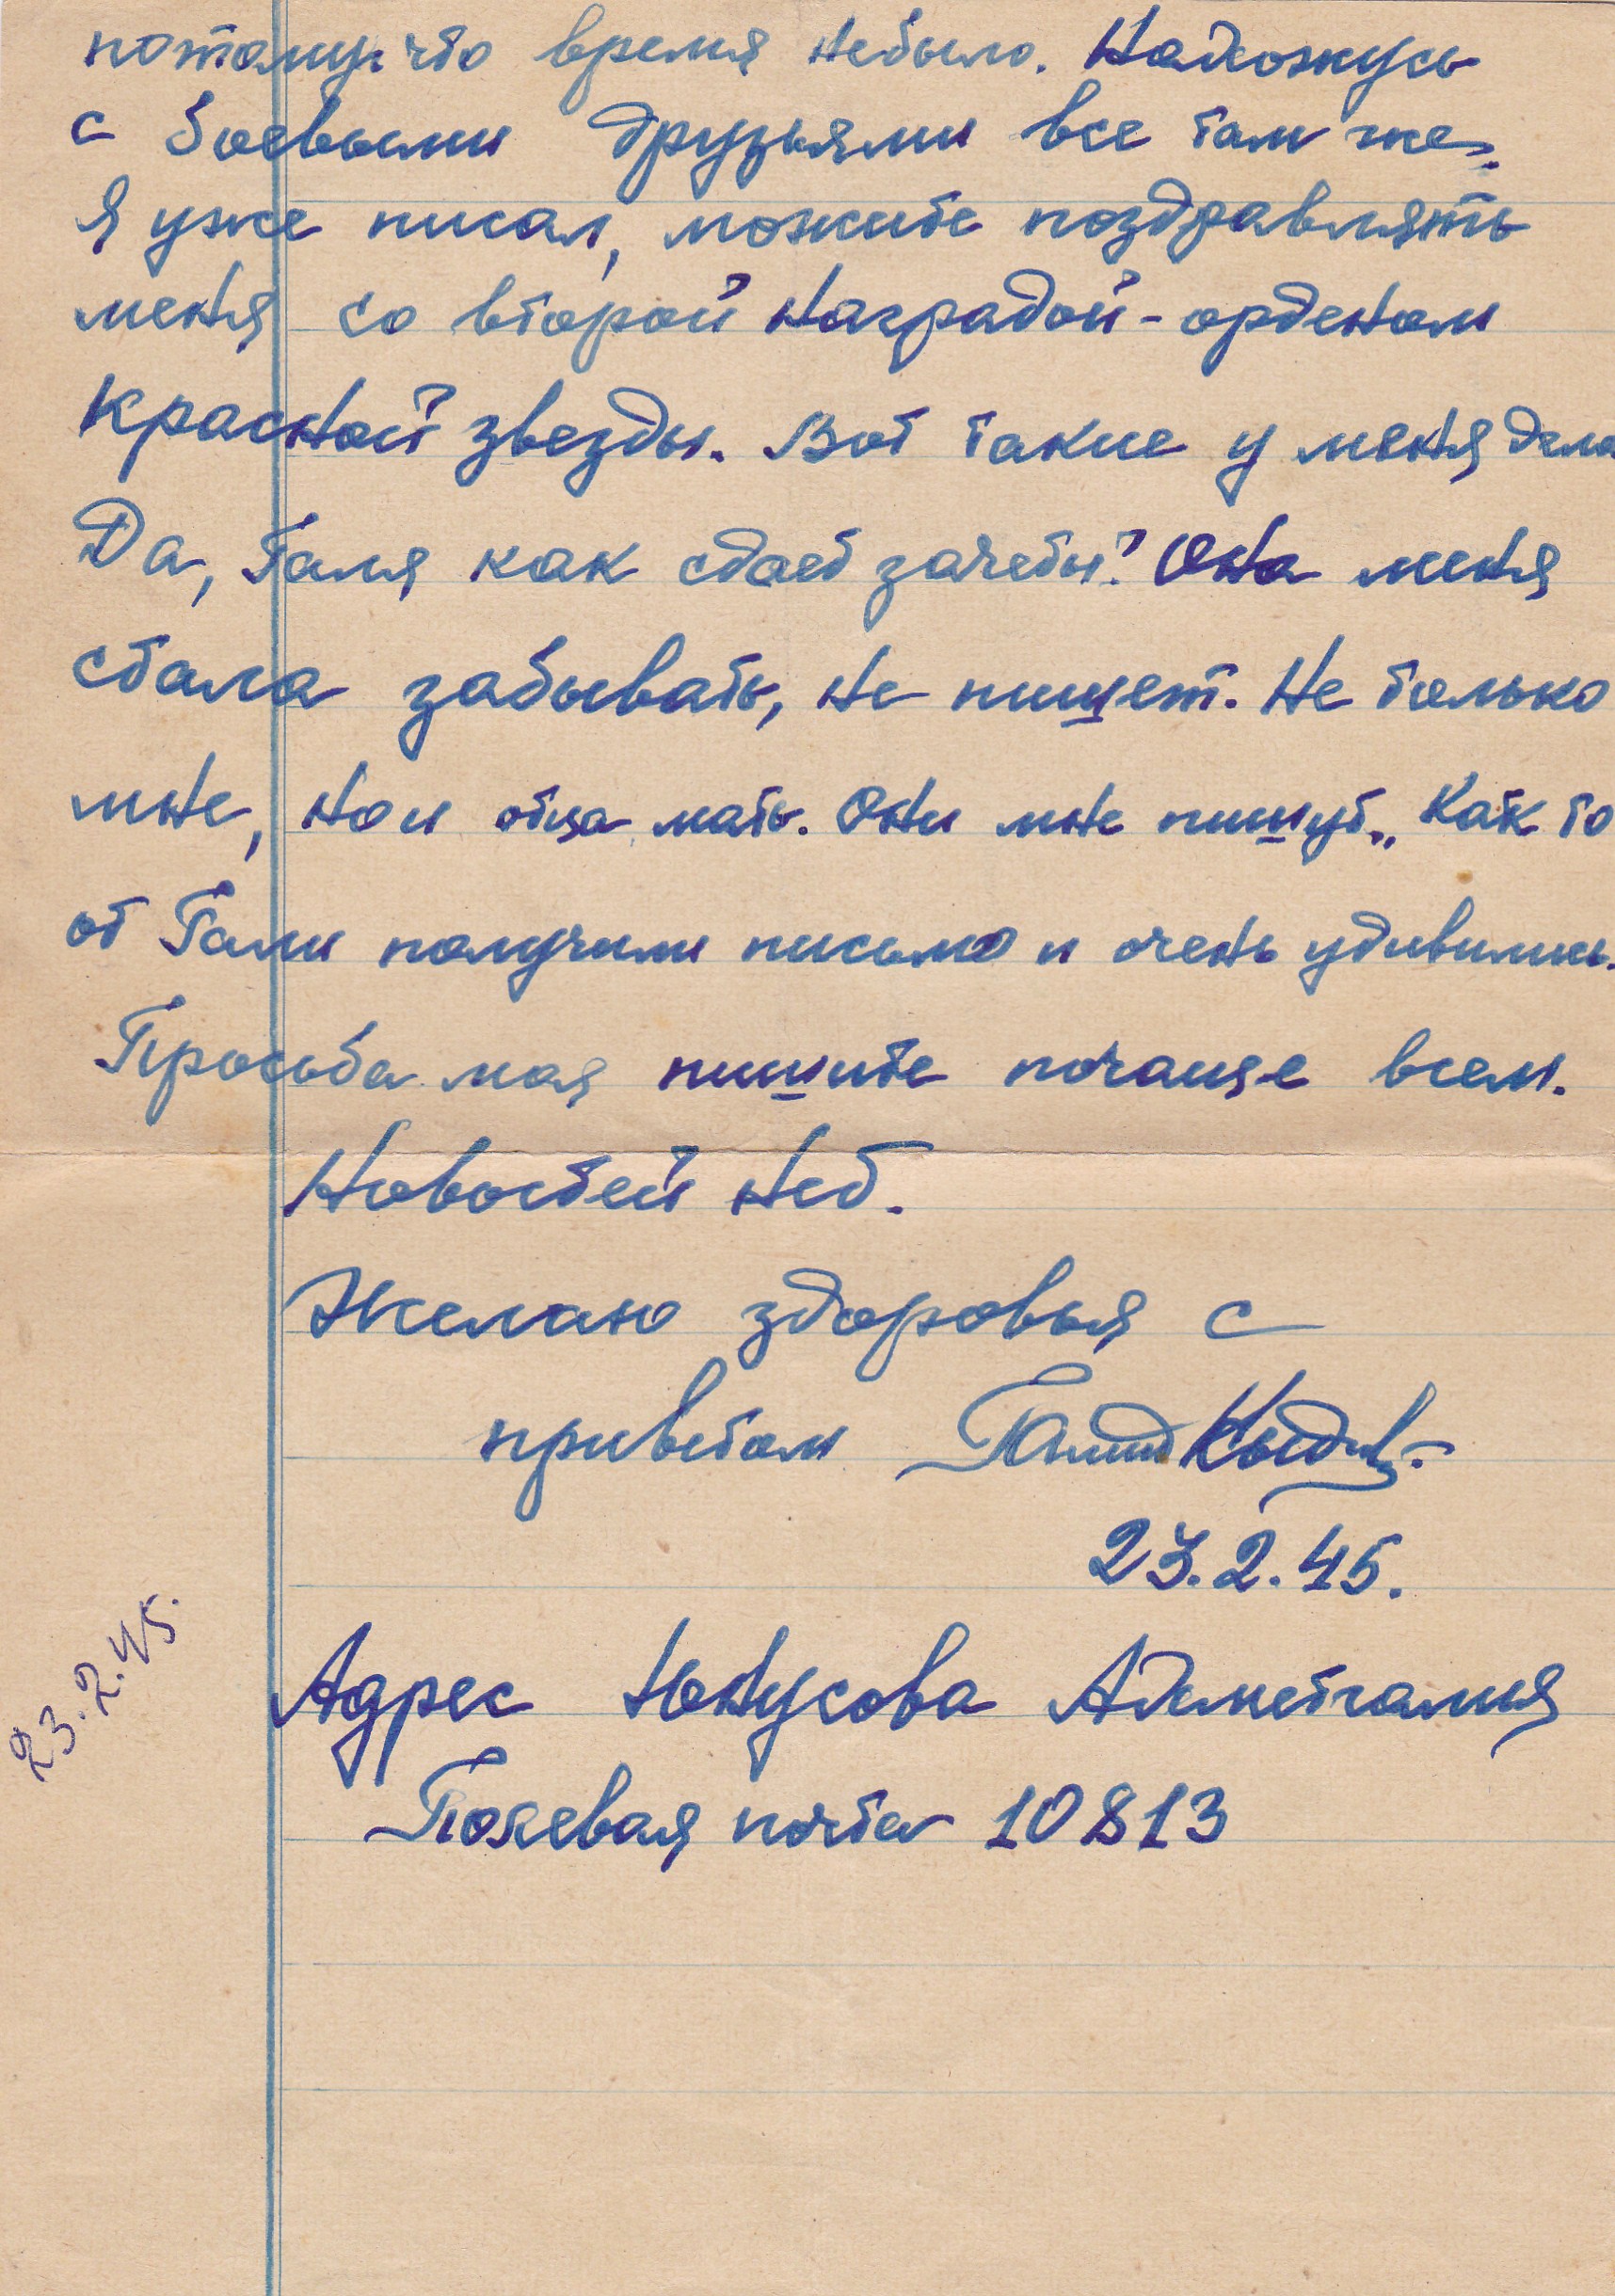 потому что время небыло. Нахожусь
с боевыми друзьями все там же.
Я уже писал, можите поздравлять
меня со второй наградой - орденом
красной звезды. Вот такие у меня дела
Да, Галя как сдает зачеты? Она меня
стала забывать, не пишет. Не только
мне, но и отца мать. Они мне пишут „Как то
от Гали получили письмо и очень удивились.
Просьба моя пишите почаще всем.
Новостей нет.
Желаю здоровья с
приветом
23.2.45.
23.2.45.
Адрес Юнусова Адиетгалия
Полевая почта 10813